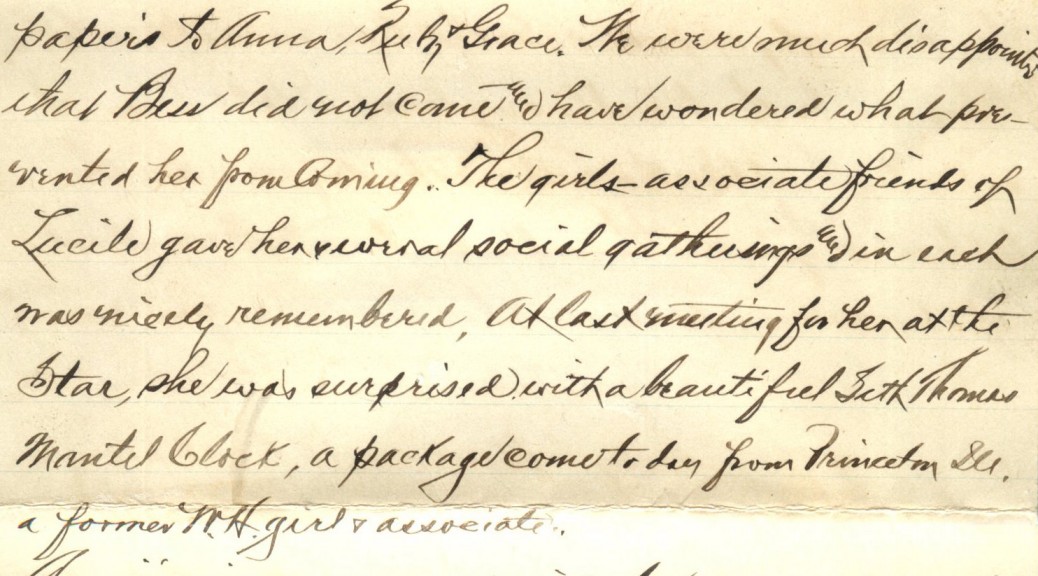 papers to Anna, Ruby & Grace. We were much disappointed
that Bess did not come and have wondered what pre-
vented her from Coming. The girls - associate friends of
Lucile gave her several social gatherings and in each
was nicely remembered, At last meeting for her at the
Star, she was surprised with a beautiful Seth Thomas
Mantel Clock, a package come to day from Princeton Ill.
a former W.H. girl & associate.